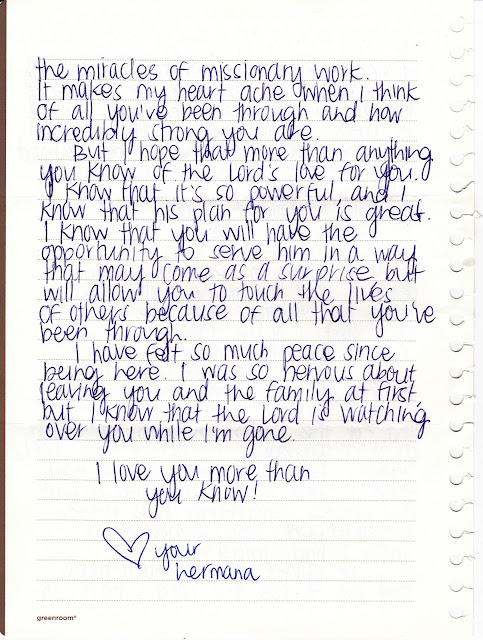 the miracles of missionary work.
It makes my heart ache when i think
of all you've been through and how
incredibly strong you are.
But I hope that more than anything
you know of the Lord's love for you.
I know that it's so powerful, and I
know that his plan for you is great.
I know that you will have the
opportunity to serve him in a way
that may come as a surprise but
will allow you to touch the lives
of others because of all that you've
been through.
I have felt so much peace since
being here. I was so nervous about
leaving you and the family at first,
but I know that the Lord is watching
over you while I'm gone.
I love you more than
you know!
your
hermana
greenroom®